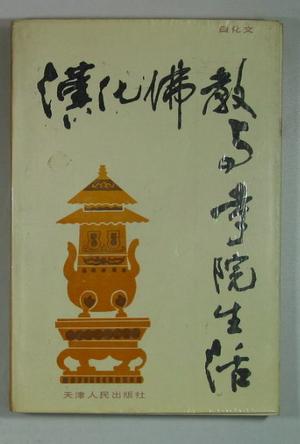 白化文
漢化佛教与寺院生活
天津人民出版社